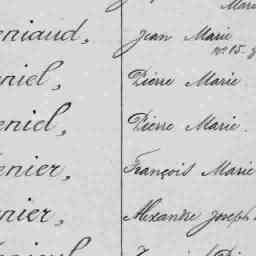 Marie
eniaud, Jean Marie
n° 15.
eniel, Pierre Marie
eniel, Pierre Marie.
enier, François Marie
enier, Alexandre Joseph